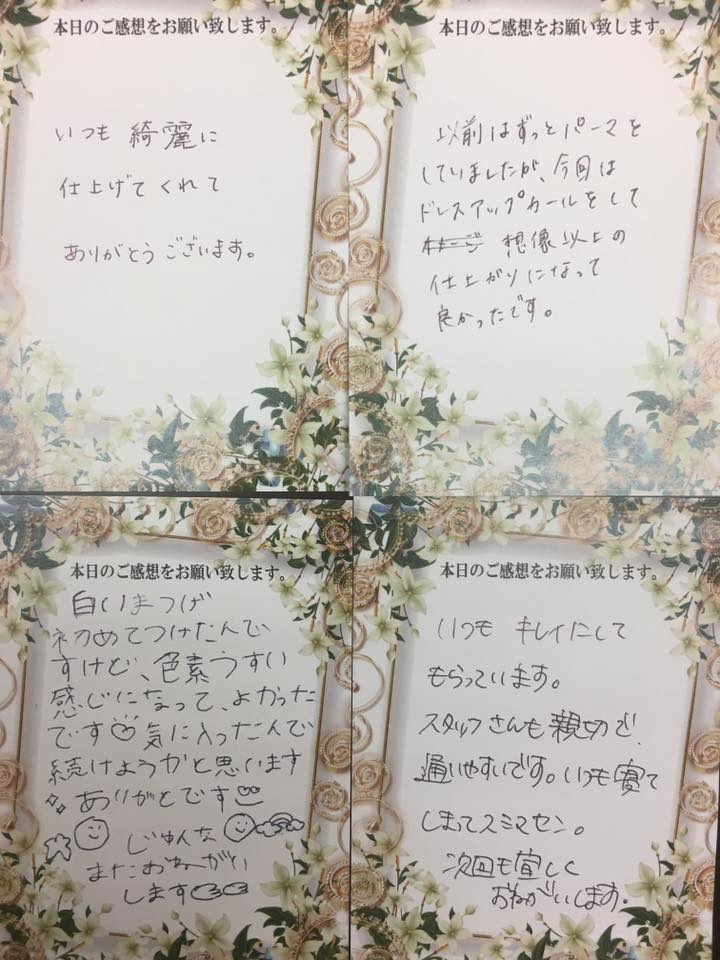 本日のご感想をお願い致します。
いつも 綺麗に
仕上げて くれて
ありがとう ございます。
本日のご感想をお願い致します。
以前はずっとパーマを
していましたが、今回は
ドレスアップカールをして
想像以上の
仕上がりになって
良かったです。
本日のご感想をお願い致します。
白いまつげ
初めてつけたんで
すけど、色素うすい
感じになって、よかった
です 気に入ったんで
続けようかと思います
ありがとです
じゅんな
またおねがい
します
本日のご感想をお願い致します。
いつも キレイにして
もらっています。
スタッフさんも親切で、
通いやすいです。いつも寝て
しまってスミマセン。
次回も宜しく
おねがいします。